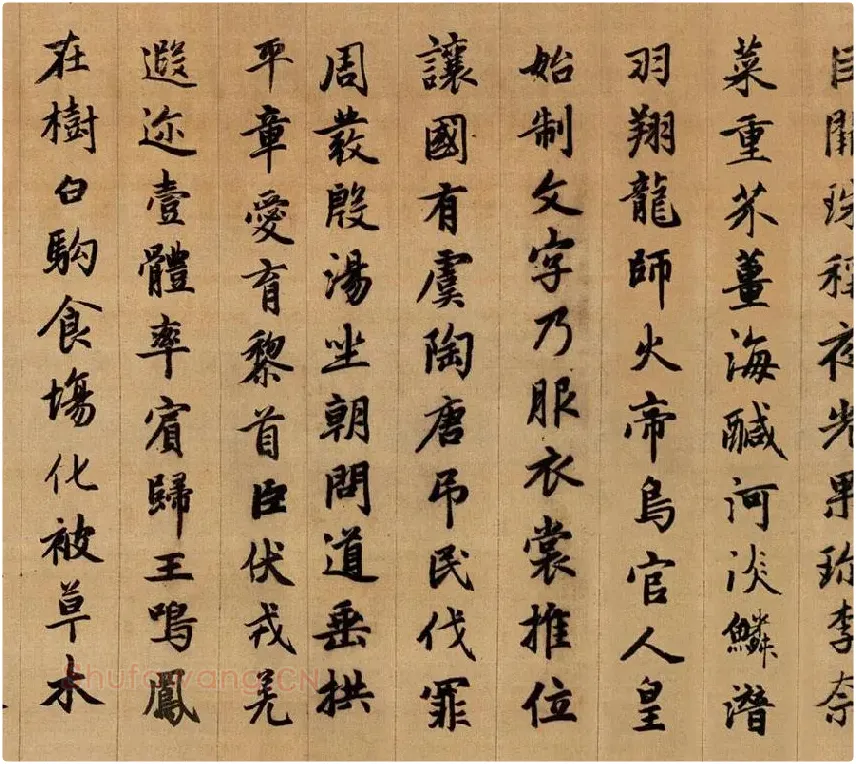 巨闕珠稱夜光果珎李柰
菜重芥薑海醎河淡鱗潛
羽翔龍師火帝鳥官人皇
始制文字乃服衣裳推位
讓國有虞陶唐吊民伐罪
周發殷湯坐朝問道垂拱
平章愛育黎首臣伏戎羌
遐迩壹體率賓歸王鳴鳳
在樹白駒食場化被草木
Shufawang.CN